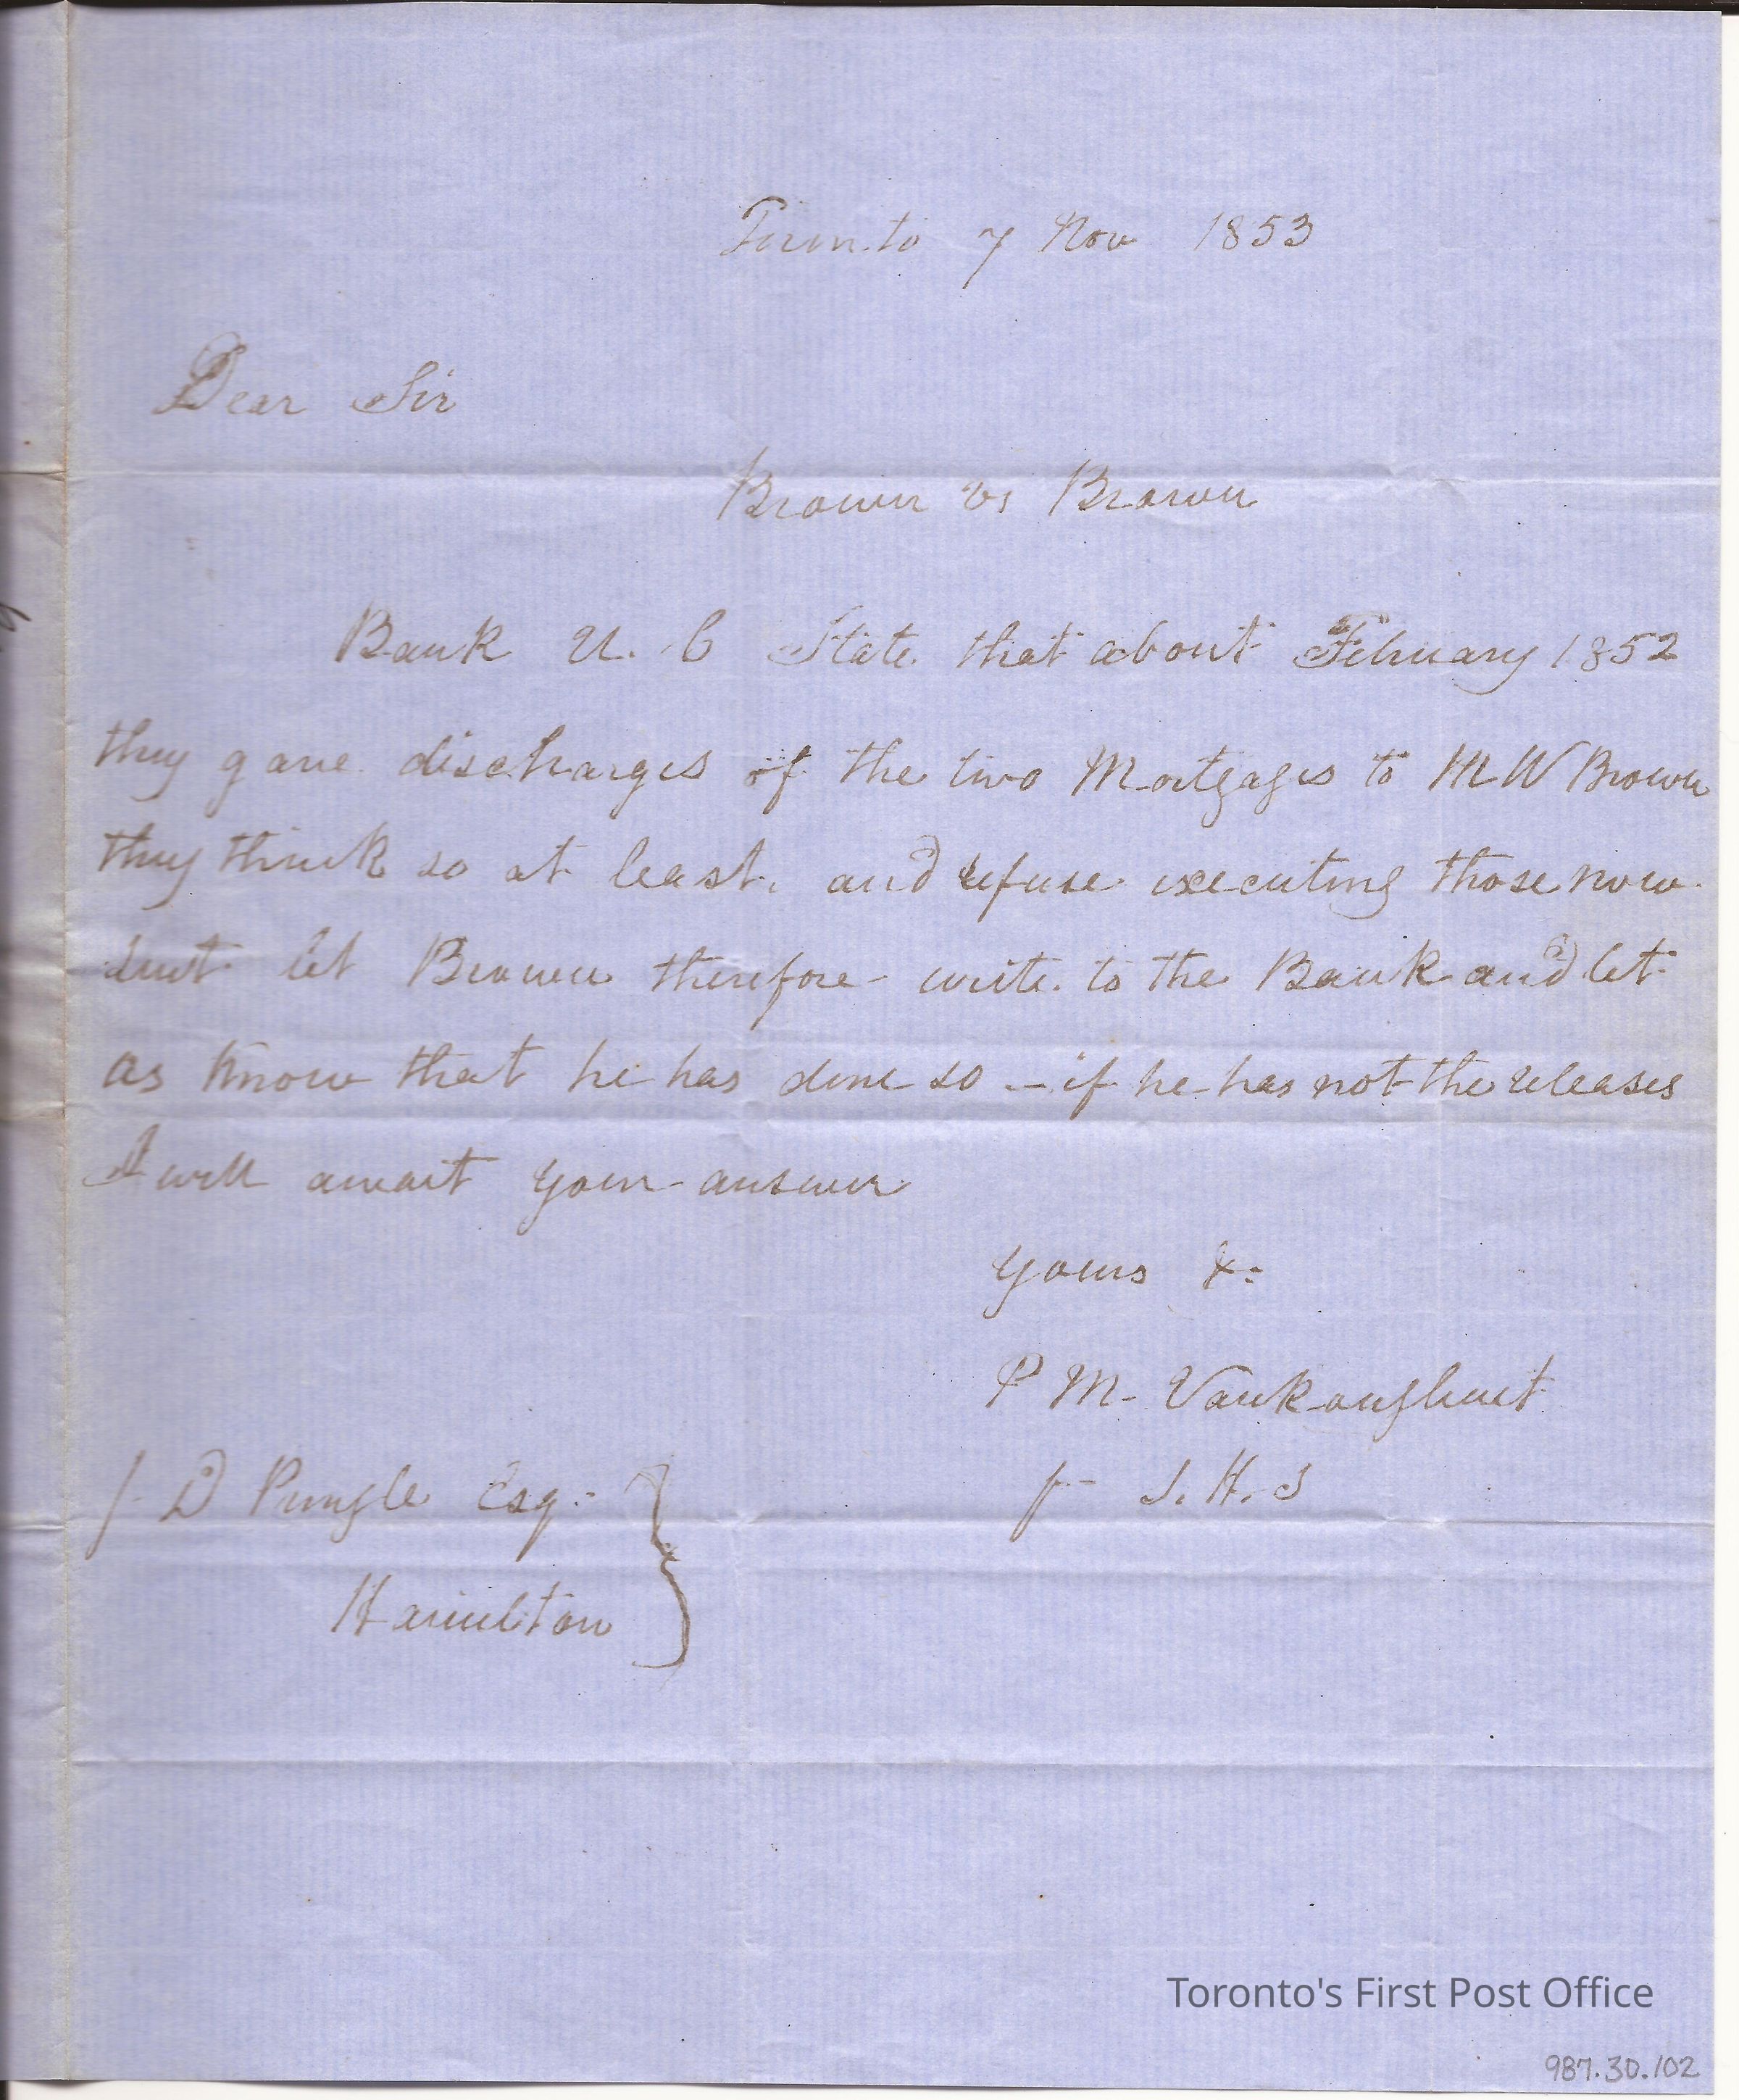 Toronto 7 Nov 1853
Dear Sir
Brown vs Brown
Bank U. C State that about February 1852
they gave discharges of the two Mortgages to M W Brown
they think so at least, and refuse executing those now
sent let Brown therefore write to the Bank and let
us know that he has done so – if he has not the releases
I will await your answer
Yours &c
P M. Vankoughnet
p S. H. S
J D Pringle Esq.
Hamilton
Toronto's First Post Office
987.30.102